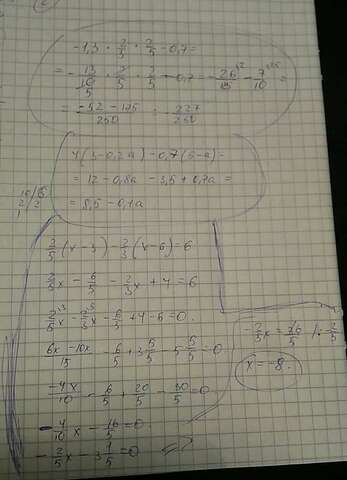 -1,3 · 2/5 · 2/5 - 0,7 =
= - 13/10 · 2/5 · 2/5 - 0,7 = - 26/ - 7/10 =
= -52 - 175/250 = - 227/250
4(3-0,2a) - 0,7(5-a) =
= 12 - 0,8a - 3,5 + 0,7a =
= 8,5 - 0,1a
2/5 (x-3) - 2/3 (x-6) = 6
2/5 x - 6/5 - 2/3 x + 4 = 6
2/5 x - 2/3 x - 6/5 + 4 - 6 = 0
6x - 10x/15 - 6/5 + 3 5/5 - 5 5/5 = 0
-4x/10 - 6/5 + 20/5 - 30/5 = 0
- 4/10 x - 16/5 = 0
- 2/5 x - 3 1/5 = 0
x = -8.